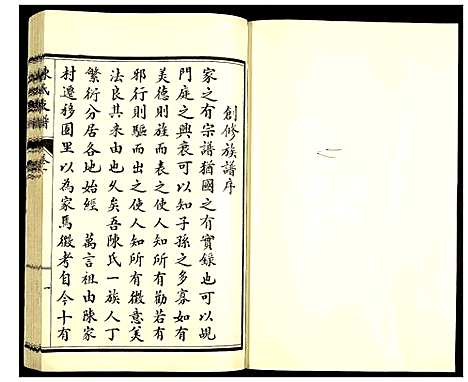 二
創修族譜序
家之有宗譜猶國之有實錄也可以覘
門庭之興衰可以知子孫之多寡如有
美德則旌而表之使人知所有勸若有
邪行則驅而出之使人知所有懲意美
法良其來由也久矣吾陳氏一族人丁
繁衍分居各地始經 萬言祖由陳家
村遷移圈里以為家焉徵考自今十有
陳氏族譜 卷一
一